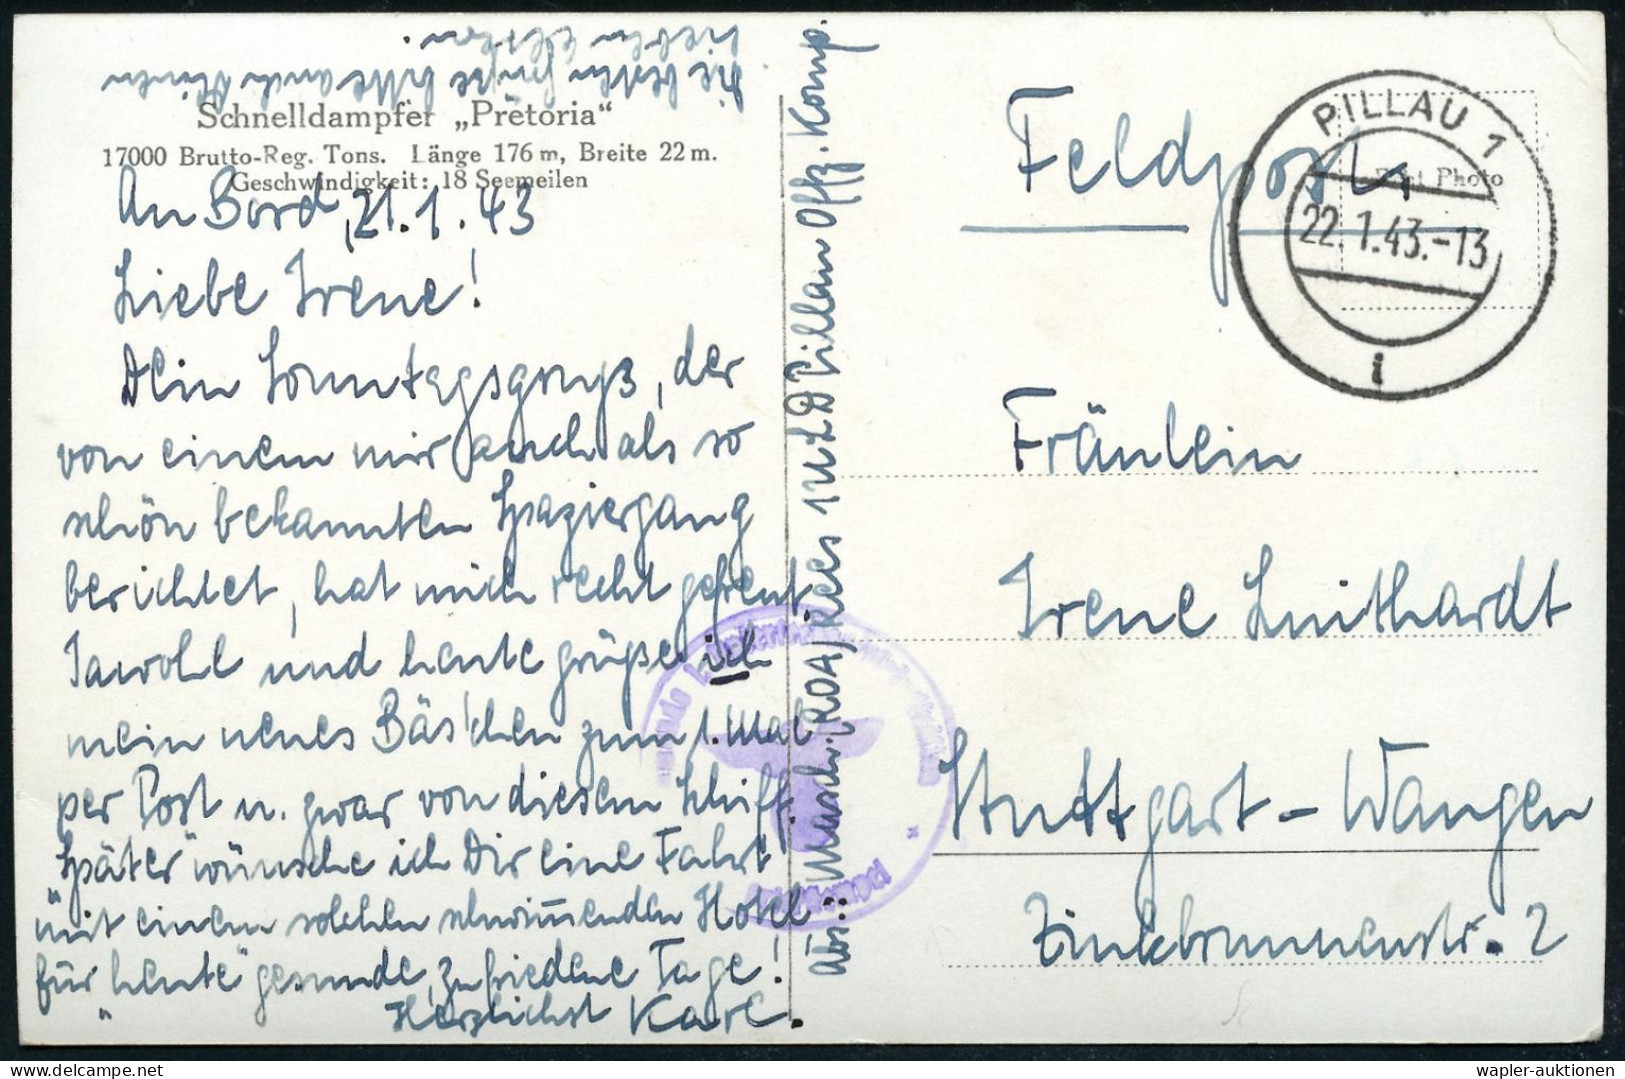 Die besten Grüße bitte auch Deinen
lieben Eltern.
Schnelldampfer „Pretoria“
17000 Brutto-Reg. Tons. Länge 176 m, Breite 22 m.
Geschwindigkeit: 18 Seemeilen
An Bord, 21.1.43
Liebe Irene!
Dein Sonntagsgruß, der
von einem mir auch als so
schön bekannten Spaziergang
berichtet, hat mich recht gefreut.
Jawohl und heute grüße ich
mein neues Bäs'chen zum 1. Mal
per Post u. zwar von diesem Schiff.
Später wünsche ich Dir eine Fahrt
mit einem solchen schwim̅enden Hotel
„für heute“ gesunde, zufriedene Tage!
Herzlichst Karl.
Abs.: Masch. (ROA) 1. ULD Pillau Offz. Komp.
Feldpost
Post Photo
PILLAU 1
22.1.43.-13
i
Fräulein
Irene Luithardt
Stuttgart-Wangen
Zinkbrunnenstr. 2
Briefstempel
wapler-auktionen